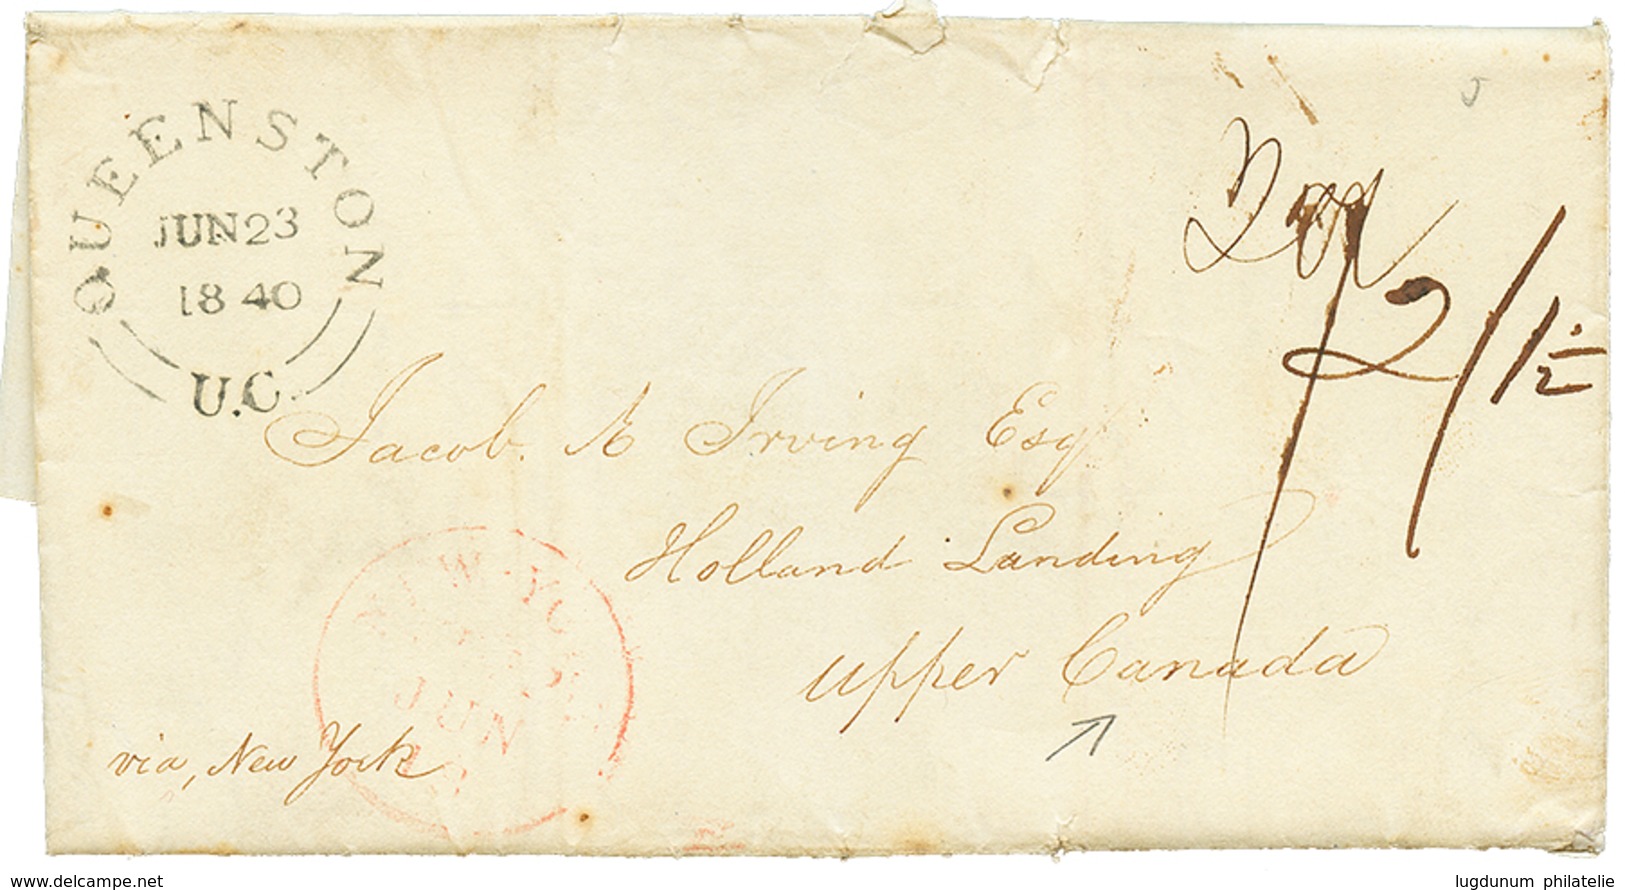 QUEENSTON
JUN 23
1840
U.C.
2/1½
Jacob. Æ Irving Esq
Holland Landing
Upper Canada
via, New York
NEW-YORK
JUN
www.delcampe.net
lugdunum philatelie